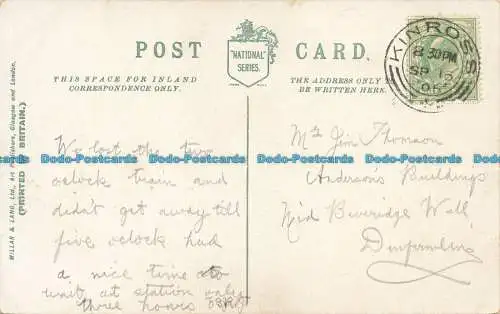 POST CARD.
"NATIONAL" SERIES.
THIS SPACE FOR INLAND
CORRESPONDENCE ONLY.
THE ADDRESS ONLY TO
BE WRITTEN HERE.
KINROSS
8 30 PM
SP 5
05
MILLAR & LANG, Ltd., Art Publishers, Glasgow and London.
(PRINTED IN BRITAIN.)
We lost the two
oclock train and
didn't get away till
five oclock had
a nice time to
wait at station only
three hours
Jim Thomson
Anderson's Buildings
Beveridge Well
Dunfermline
Bobs-Postcards Bobs-Postcards Bobs-Postcards Bobs-Postcards